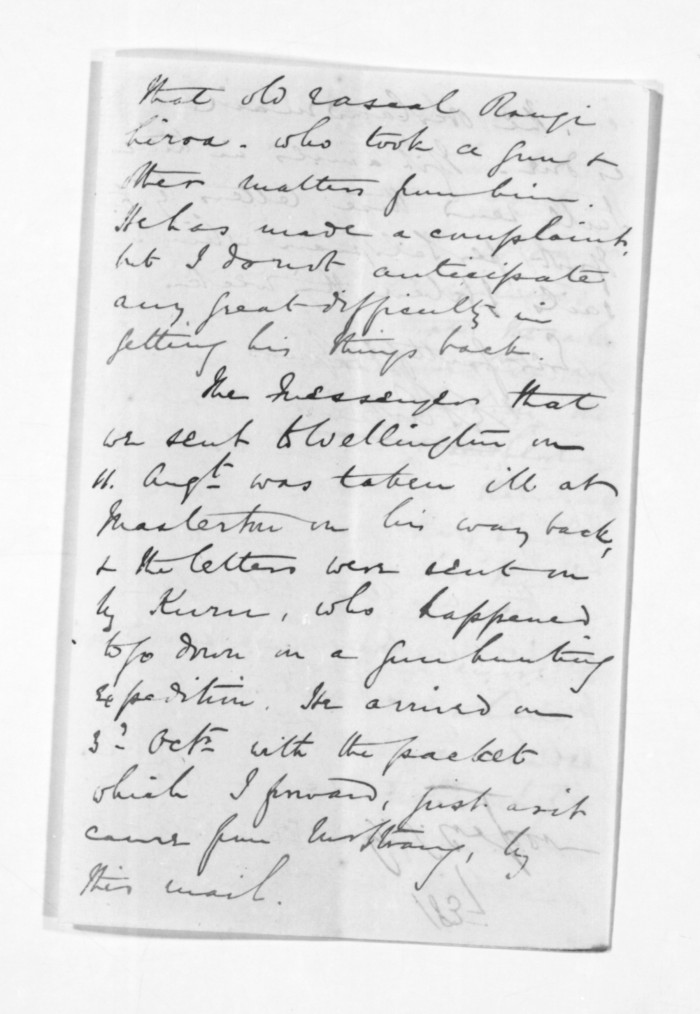 that old rascal Rangi
hiroa - who took a gun &
other matters from him.
He has made a complaint,
but I do not anticipate
any great difficulty in
getting his things back.
The Messenger that
we sent to Wellington on
11. Augt. was taken ill at
Masterton on his way back,
& the letters were sent on
by Kuru, who happened
to go down on a gun hunting
expedition. He arrived on
3d. Octr. with the packet
which I forward, just as it
came from Mr Strang, by
this mail.